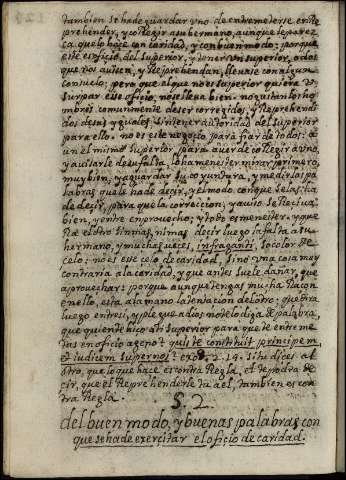 tambien se ha de guardar uno de entremeterse en Re
prehender, y corregir a su hermano, aunque le parez
ca que lo hace con caridad, y con buen modo: porque
este es oficio del superior, y tener un superior, o dos
que nos avisen, y Reprehendan, llevase con algun
consuelo; pero que el que no es superior quiere v
surpar ese oficio, no se lleva bien. no gustan los ho
mbres comunmente de ser corregidos, y Reprehendi
dos de sus yguales. sin tener autoridad del superior
para ello. no es este negocio para fiar de todos: a
un el mismo superior, para aver de corregir a uno,
y avisarle de su falta, lo ha menester mirar primero
muy bien, y aguardar su coyuntura, y medir las pa
labras que le ha de decir, y el modo con que se las ha
de decir, para que la correccion, y aviso se Reciva
bien, y entre en provecho; y todo es menester. y que
el otro sin mas, ni mas decir luego la falta a su
hermano, y muchas veces, infraganti, so color de
celo: no es este celo de caridad, sino una cosa muy
contraria a la caridad, y que antes suele dañar, que
aprovechar: porque aunque tengas mucha Racon
en ello, esta a la mano la tentacion del otro: que dira
luego entre si, y plegue a dios no te lo diga de palabra,
que quien te hico a ti superior para que te entreme
tas en oficio ageno? quis te constituit principem,
et iudicem super nos? exo. 2. 14. si tu dices al
otro, que lo que hace es contra Regla, el te podra de
cir, que el Reprehenderle tu a el, tambien es con
tra Regla.
§. 2.
del buen modo, y buenas palabras con
que se ha de exercitar el oficio de caridad.